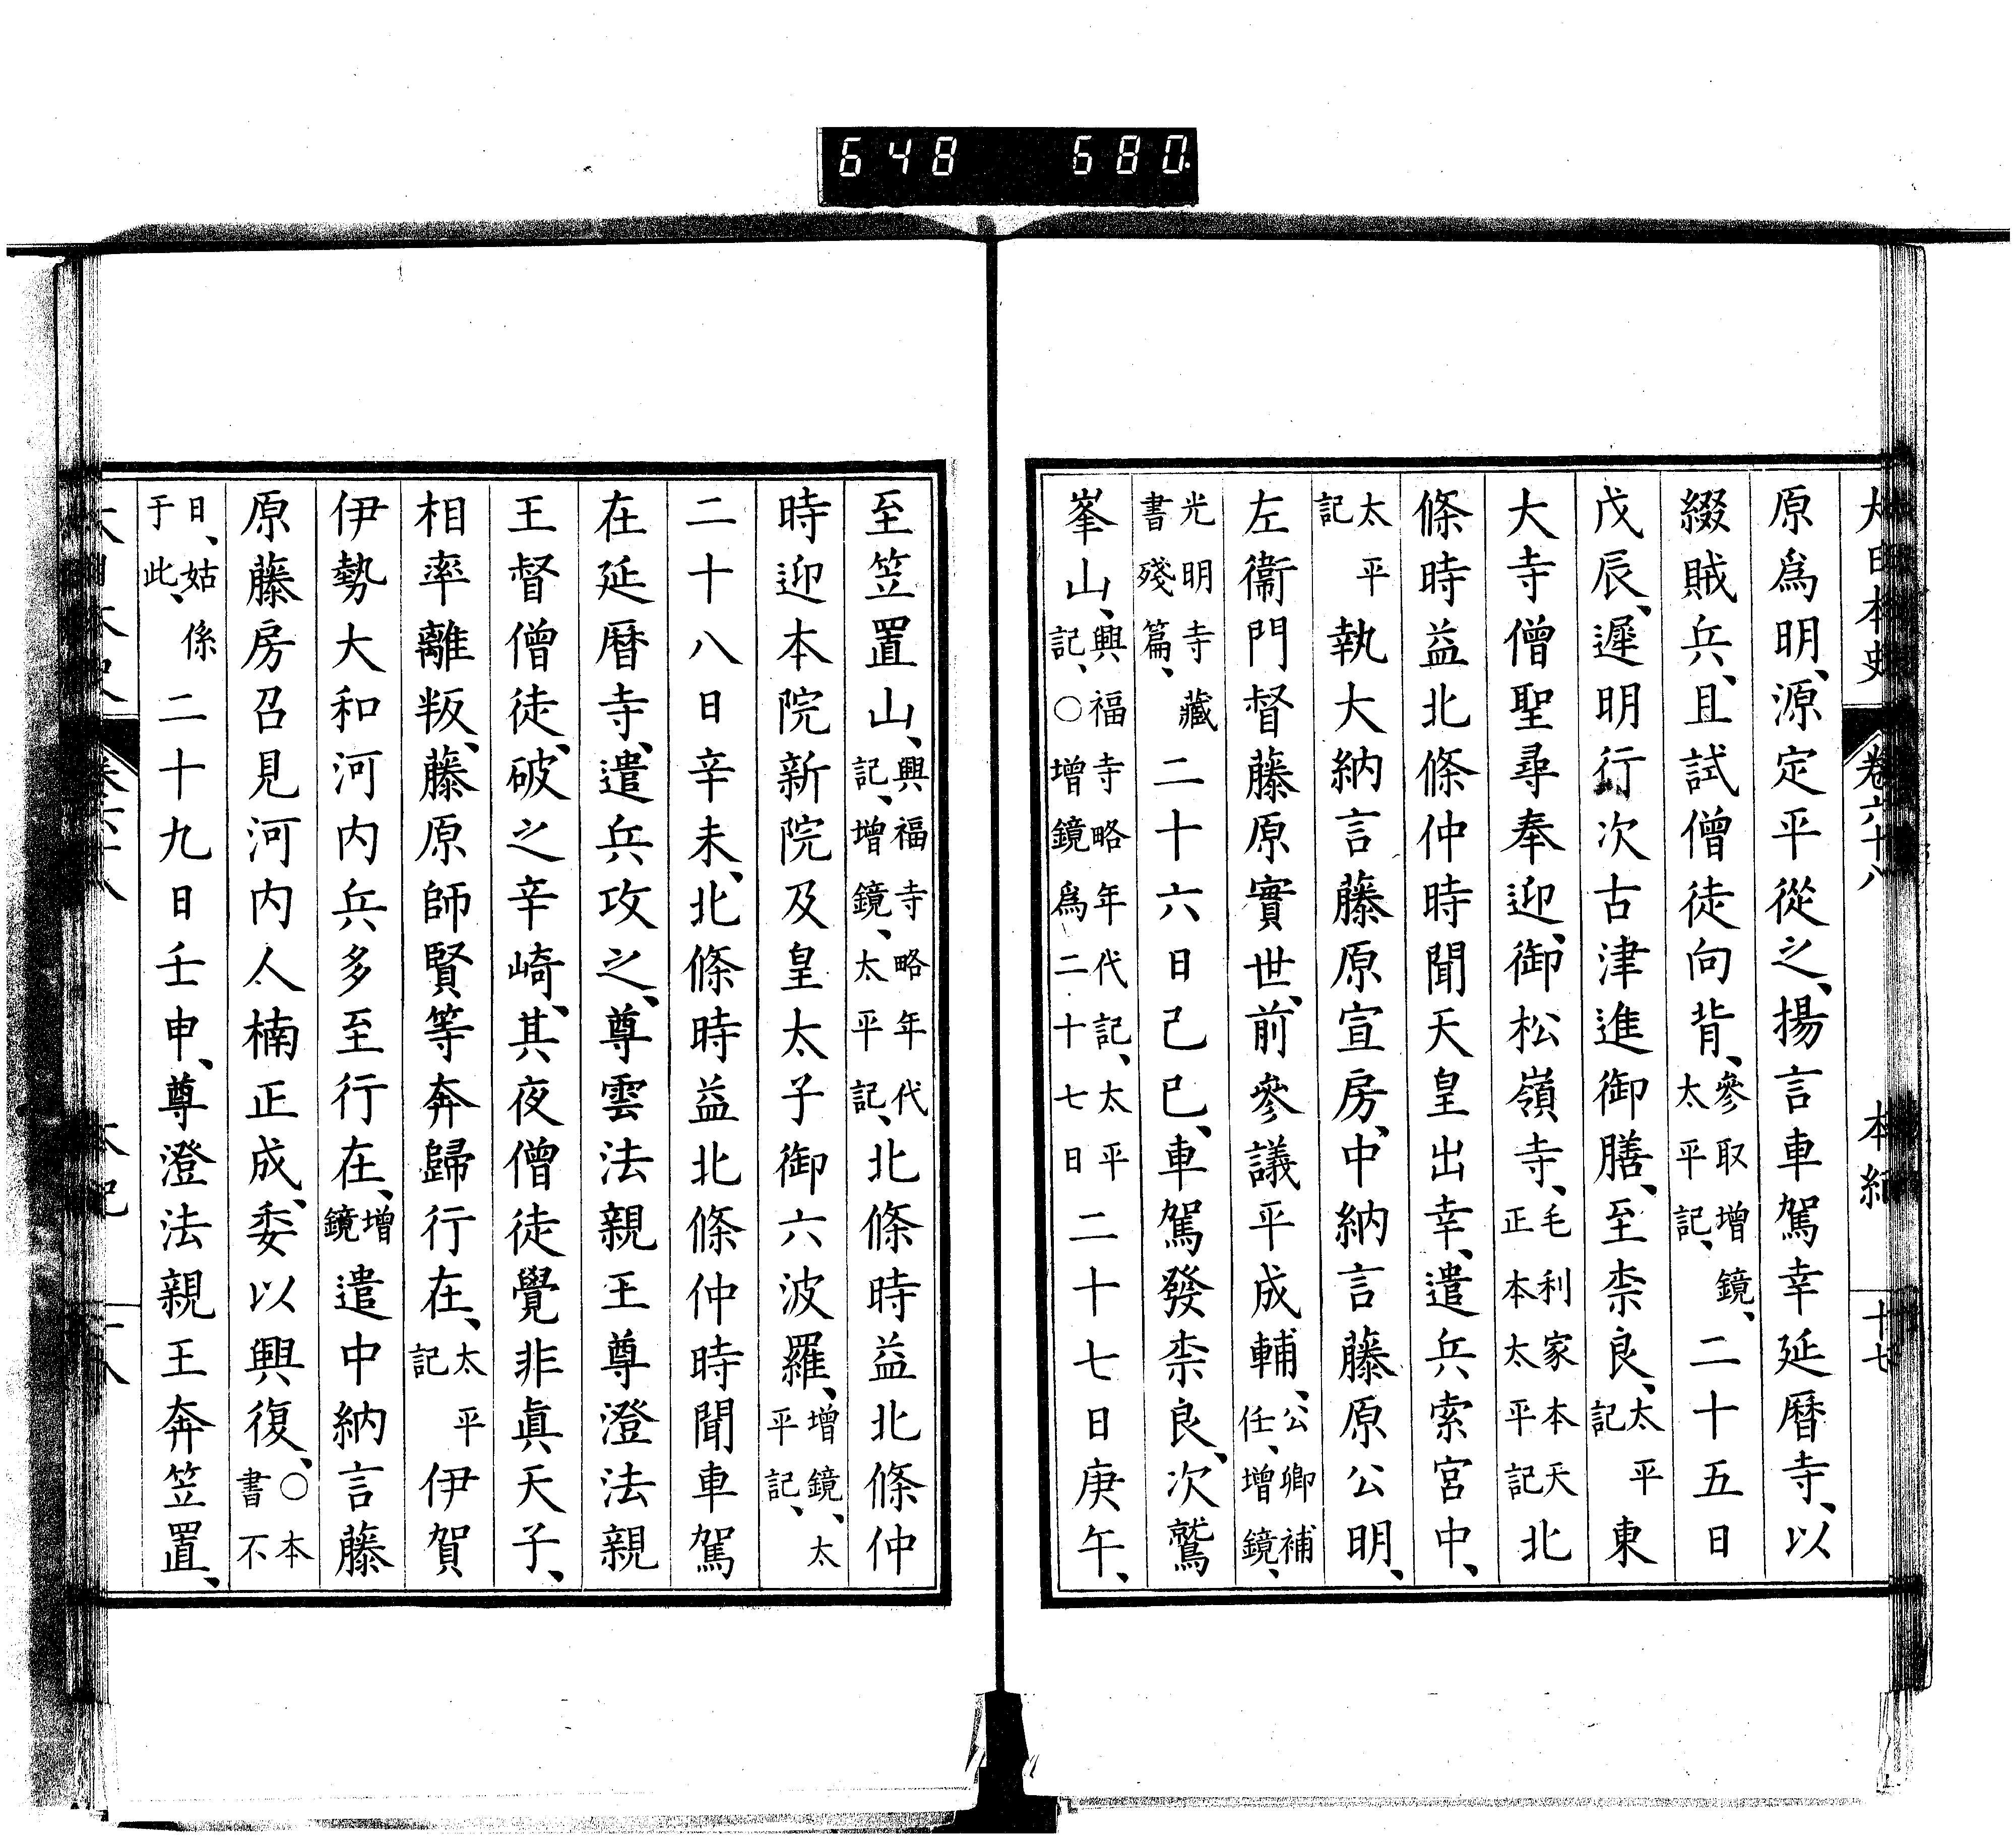 648 680
大日本史 卷六十八 本紀 十七
原爲明、源定平從之、揚言車駕幸延曆寺、以
綴賊兵、且試僧徒向背、參取增鏡、太平記、二十五日
戊辰、遲明行次古津進御膳、至柰良、太平記東
大寺僧聖尋奉迎、御松嶺寺、毛利家本天正本太平記北
條時益北條仲時聞天皇出幸、遣兵索宮中、
太平記執大納言藤原宣房、中納言藤原公明、
左衞門督藤原實世、前參議平成輔、公卿補任、增鏡、
光明寺藏書殘篇、二十六日己巳、車駕發柰良、次鷲
峯山、興福寺略年代記、太平記、○增鏡爲二十七日二十七日庚午、
至笠置山、興福寺略年代記、增鏡、太平記、北條時益北條仲
時迎本院新院及皇太子御六波羅、增鏡、太平記、
二十八日辛未、北條時益北條仲時聞車駕
在延曆寺、遣兵攻之、尊雲法親王尊澄法親
王督僧徒、破之辛崎、其夜僧徒覺非眞天子、
相率離叛、藤原師賢等奔歸行在、太平記伊賀
伊勢大和河内兵多至行在、增鏡遣中納言藤
原藤房召見河内人楠正成、委以興復、○本書不
日、姑係于此、二十九日壬申、尊澄法親王奔笠置、